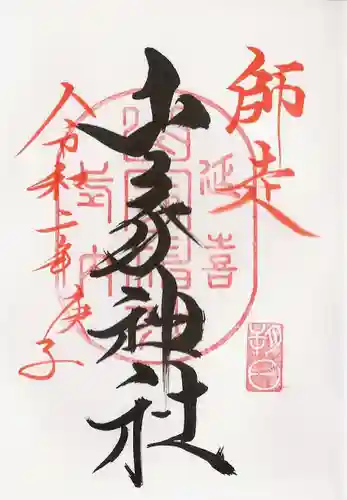 師走
山家神社
令和二年庚子
延喜
式内